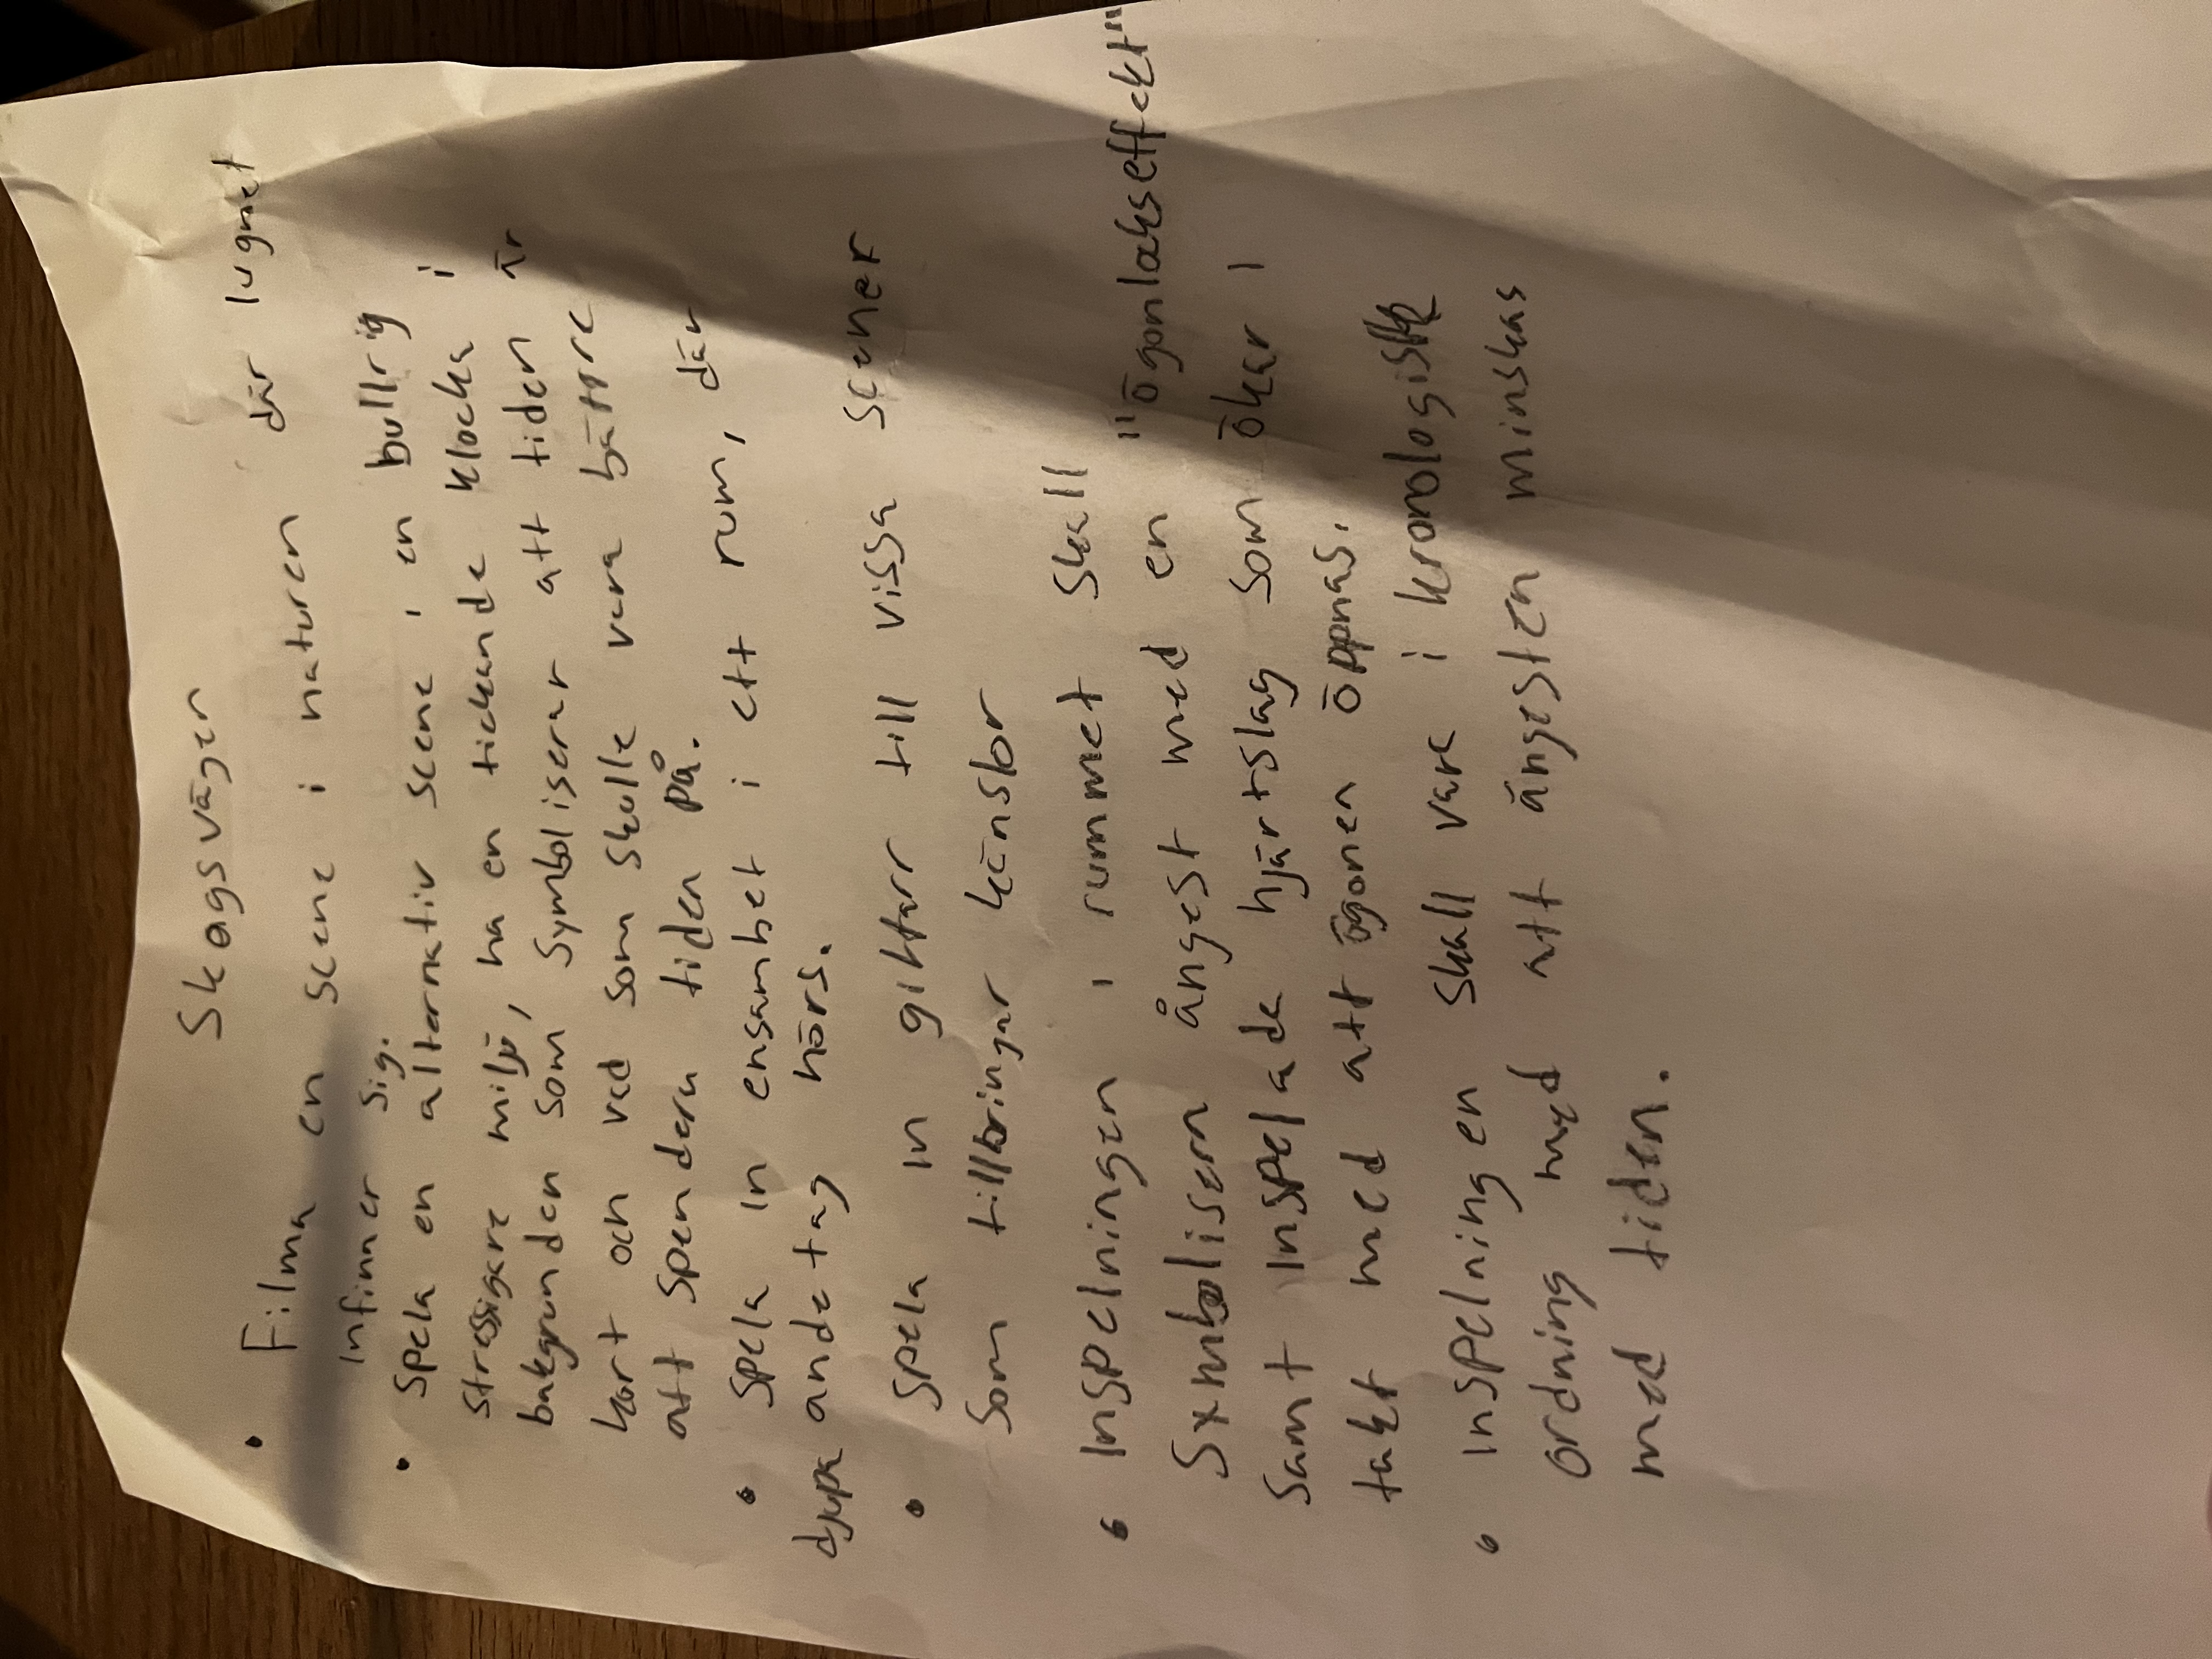 Skogsvägen
• Filma en scene i naturen där lugnet
infinner sig.
• Spela en alternativ scene i en bullrig
stressigare miljö, ha en tickande klocka i
bakgrunden som symboliserar att tiden är
kort och vad som skulle vara bättre
att spendera tiden på.
• Spela in ensambet i ett rum, där
djupa andetag hörs.
• Spela in gittarr till vissa scener
som tillbringar känslor
• Inspelningen i rummet skall
Symbolisera ångest med en "ögonlockseffekt"
samt inspelade hjärtslag som ökar i
takt med att ögonen öppnas.
• Inspelningen skall vara i kronologisk
ordning med att ångesten minskas
med tiden.